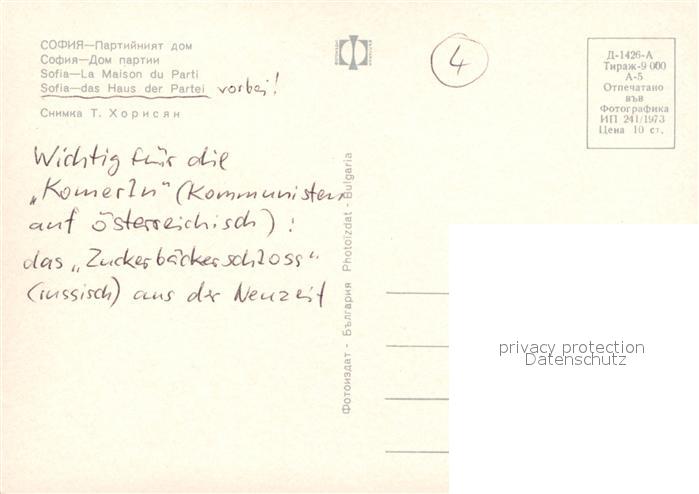 СОФИЯ—Партийният дом
София—Дом партии
Sofia—La Maison du Parti
Sofia—das Haus der Partei vorbei!
Снимка Т. Хорисян
4
Д-1426-А
Тираж-9 000
А-5
Отпечатано
във
Фотографика
ИП 241/1973
Цена 10 ст.
Wichtig für die
„Komerln“ (Kommunisten
auf österreichisch) :
das „Zuckerbäckerschloss“
(russisch) aus der Neuzeit
Фотоиздат - България Photoizdat - Bulgaria
privacy protection
Datenschutz